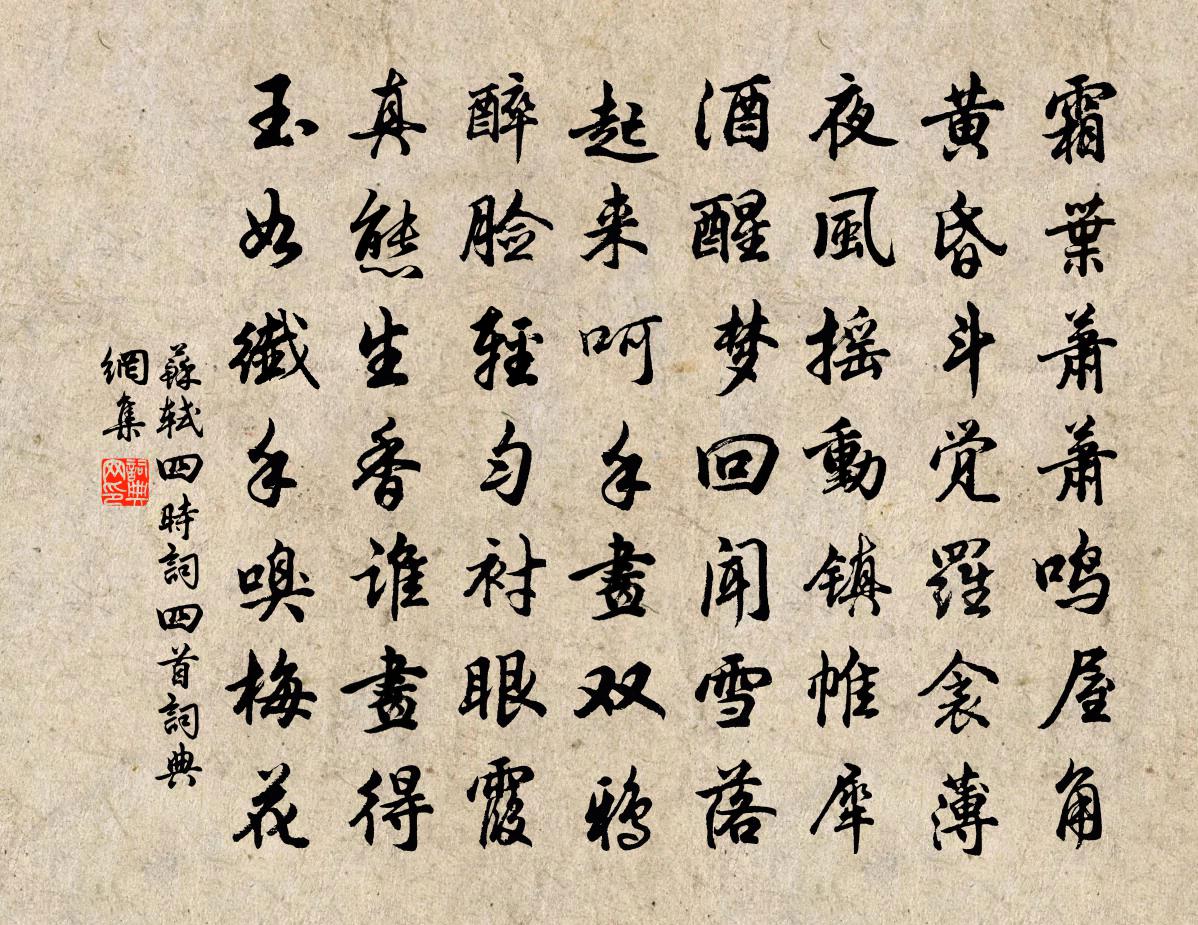 霜葉蕭蕭鳴屋角
黄昏斗覚羅衾薄
夜風摇動镇帷犀
酒醒梦回闻雪落
起来呵手畫双鴉
醉脸輕匀衬眼霞
真態生香谁畫得
玉如纖手嗅梅花
蘇軾四時詞四首詞典
網集
詞典
网印